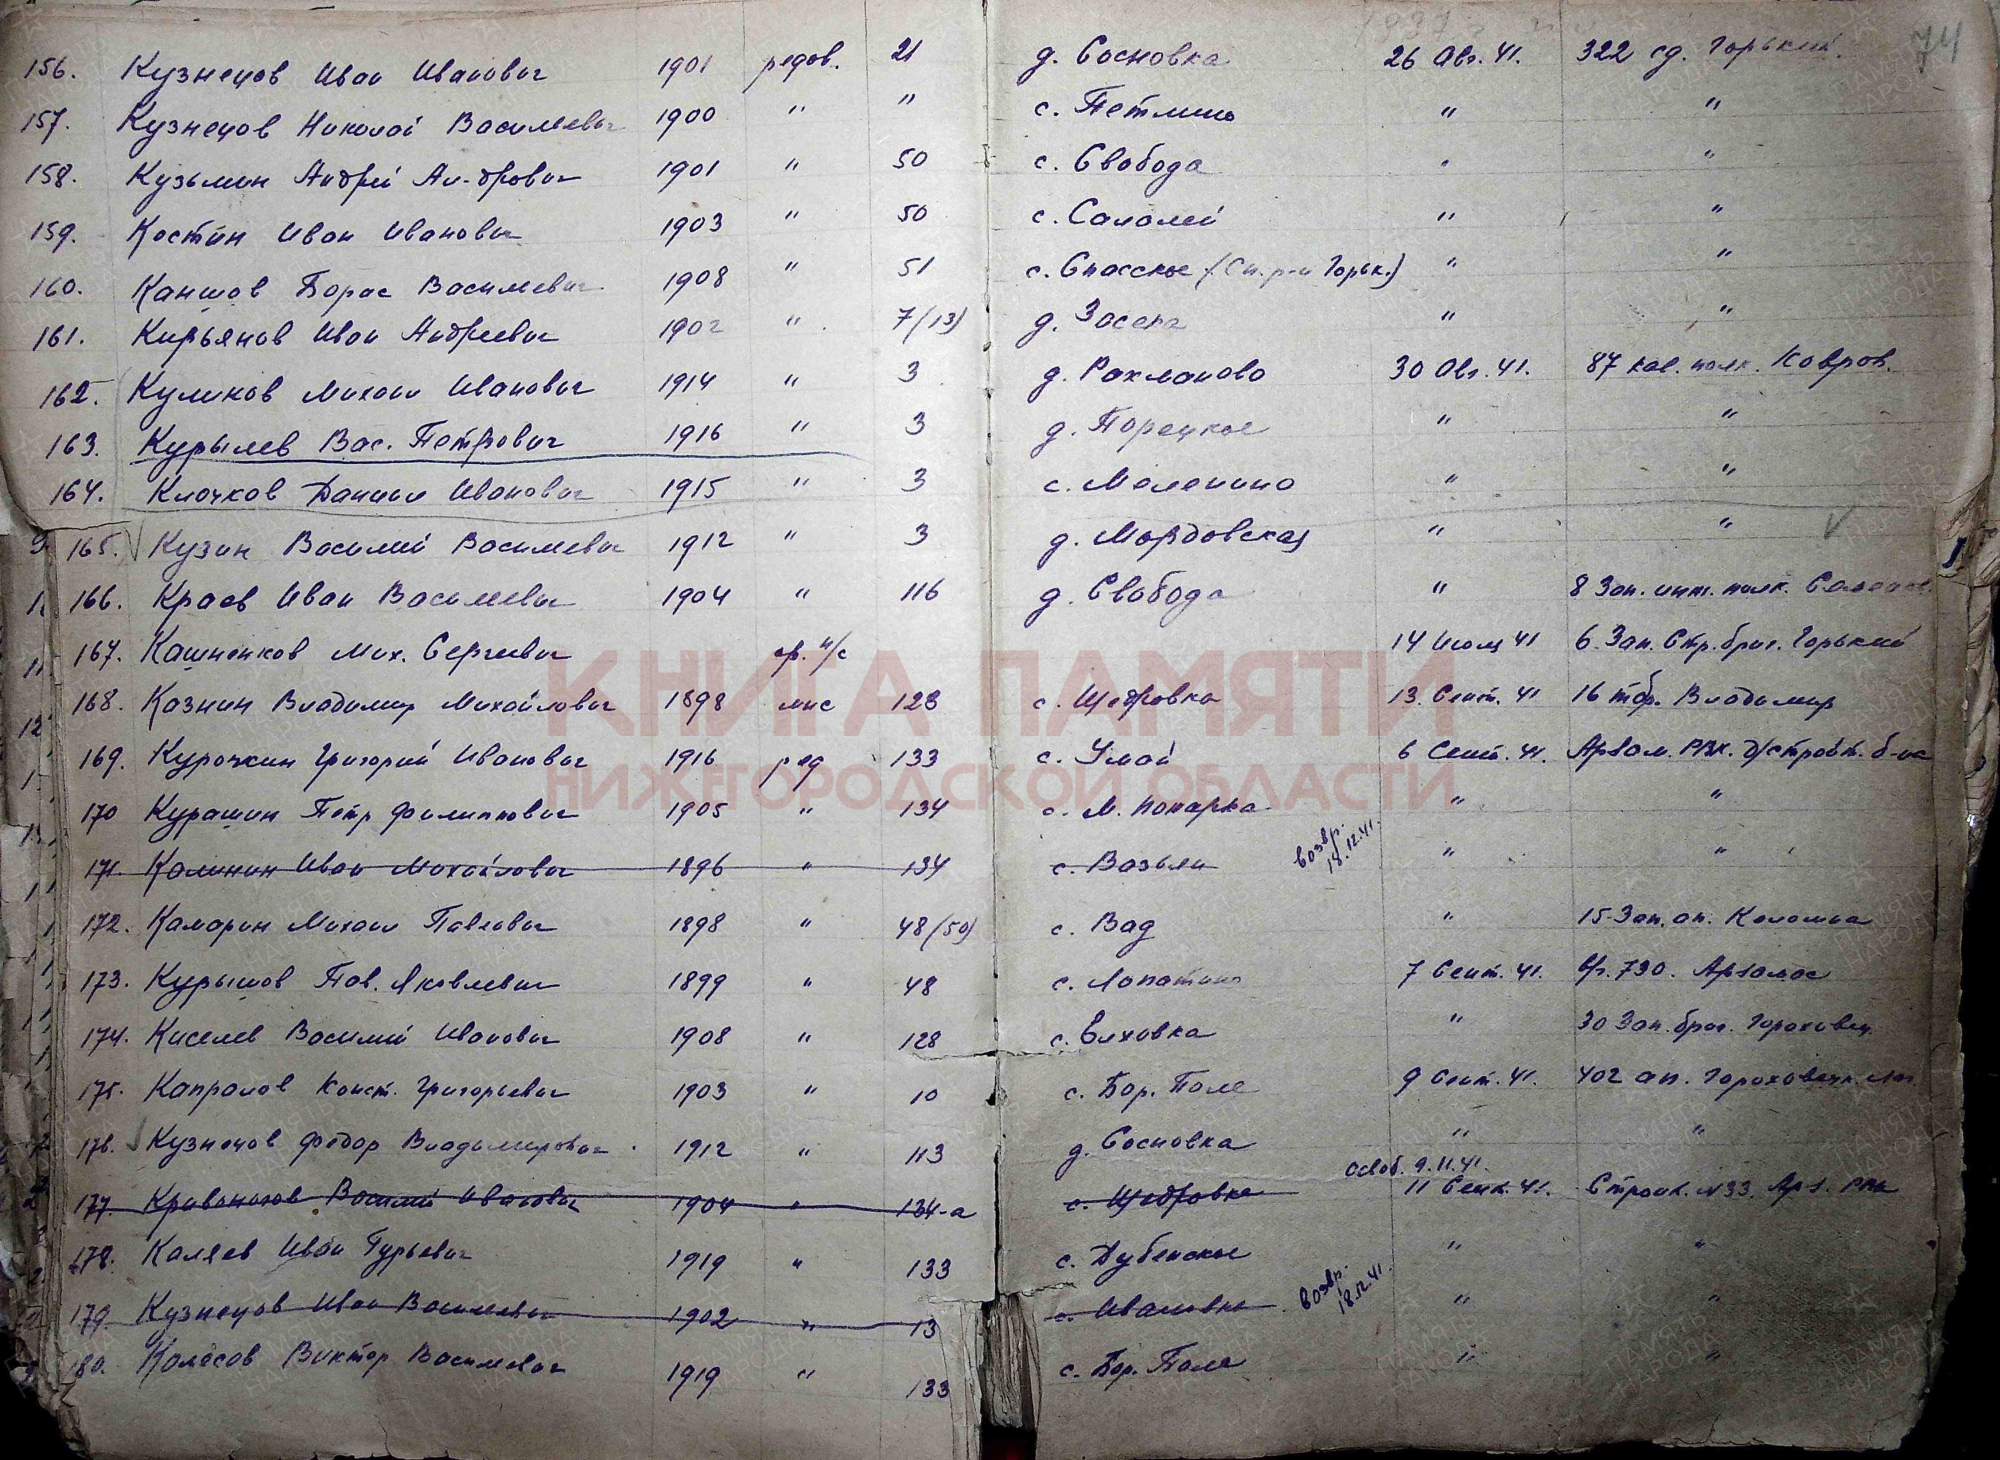 74
156. Кузнецов Иван Иванович 1901 рядов. 21 д. Сосновка 26 Авг. 41. 322 сд. Горький.
157. Кузнецов Николай Васильевич 1900 " " с. Петлино " "
158. Кузьмин Андрей Ан-дрович 1901 " 50 с. Свобода " "
159. Костин Иван Иванович 1903 " 50 с. Салалей " "
160. Каншов Борис Васильевич 1908 " 51 с. Спасское (Сп. р-н Горьк.) " "
161. Кирьянов Иван Андреевич 1902 " 7/13) д. Засека " "
162. Куликов Михаил Иванович 1914 " 3 д. Рахманово 30 Авг. 41. 87 кав. полк. Ковров.
163. Курылев Вас. Петрович 1916 " 3 д. Порецкое " "
164. Клочков Даниил Иванович 1915 " 3 с. Меленино " "
165. Кузин Василий Васильевич 1912 " 3 д. Мордовская " "
166. Краев Иван Васильевич 1904 " 116 д. Свобода " 8 Зап. инт. полк.
167. Кашненков Мих. Сергеевич ср. н/с 14 Июля 41 6 Зап. Стр. бриг. Горький
168. Казнин Владимир Михайлович 1898 мнс 123 с. Щедровка 13. Сент. 41 16 тбр. Владимир
КНИГА ПАМЯТИ
169. Курочкин Григорий Иванович 1916 ряд 133 с. Умай 6 Сент. 41. Арзам. РВК.
НИЖЕГОРОДСКОЙ ОБЛАСТИ
170 Курашин Петр Филиппович 1905 " 134 с. М. Поварка " "
171. Калинин Иван Михайлович 1896 " 134 с. Вазьян возвр. 18.12.41. " "
172. Камарин Михаил Павлович 1898 " 48/50) с. Вад " 15 Зап. ап. Коломна
173. Курышов Пав. Яковлевич 1899 " 48 с. Лопатино 7 Сент. 41. в/г. 730. Арзамас
174. Киселев Василий Иванович 1908 " 128 с. Елховка " 30 Зап. бриг. Гороховец.
175. Капралов Конст. Григорьевич 1903 " 10 с. Бор. Поле 9 Сент. 41. 402 ап. Гороховецк. лаг.
176. Кузнецов Федор Владимирович 1912 " 113 д. Сосновка " "
177. Кривоногов Василий Иванович 1904 " 134-а с. Щедровка освоб. 9.11.41. 11 Сент. 41. Строит. №33. Арз. РВК
178. Каляев Иван Гурьевич 1919 " 133 с. Дубенское " "
179. Кузнецов Иван Васильевич 1902 " 13 с. Ивановка возвр. 18.12.41. " "
180. Колесов Виктор Васильевич 1919 " 133 с. Бор. Поле " "